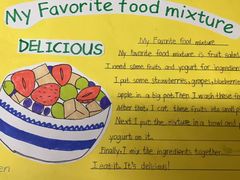 My Favorite food mixture
DELICIOUS
My Favorite food mixture
My favorite food mixture is fruit salad
I need some fruits and yogurt for ingredien
I put some strawberries, grapes, blueberries
apple in a big pot. Then, I wash these f
After that, I cut these fruits into small p
Next I put the mixture in a bowl and p
yogurt on it.
Finally, I mix the ingredients together.
I eat it. It's delicious!
en